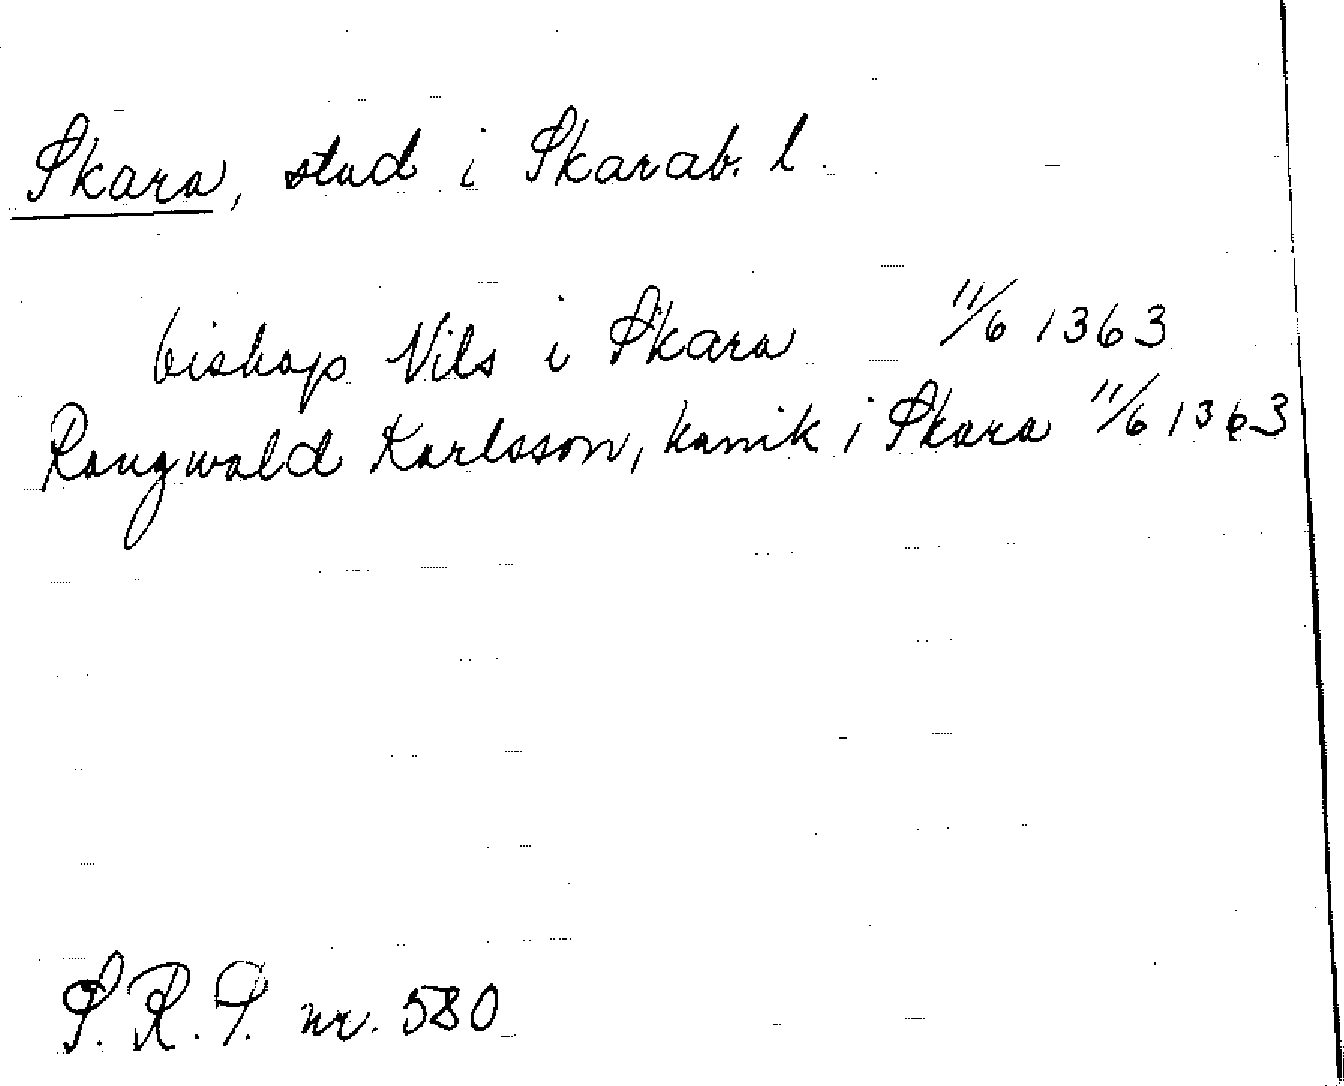 Skara, stad i Skarab. l.
biskop Nils i Skara 11/6 1363
Rangwald Karlsson, kanik i Skara 11/6 1363
S. R. P. nr. 580